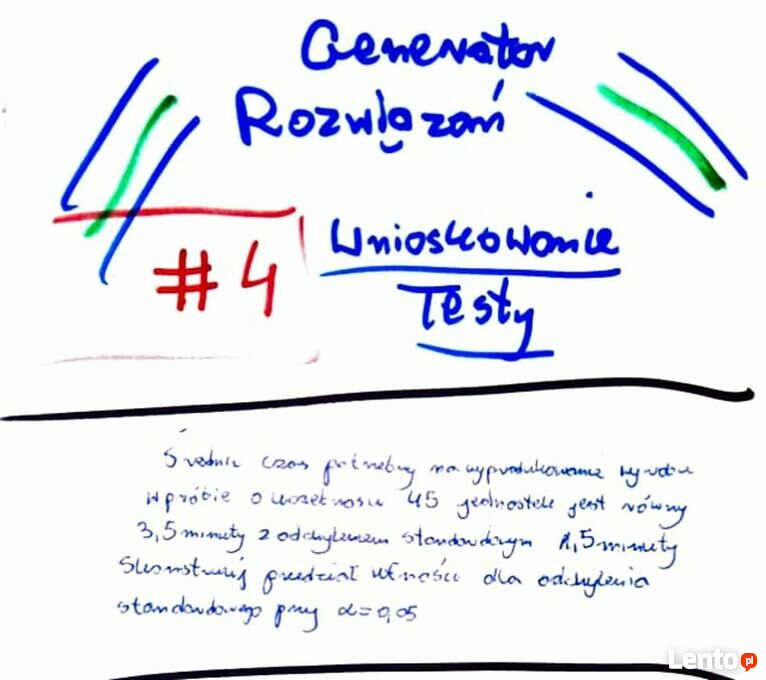 Generator
Rozwiązań
#4
Wnioskowanie
Testy
Średni czas potrzebny na wyprodukowanie wyrobu
w próbie o liczebności 45 jednostek jest równy
3,5 minuty z odchyleniem standardowym 1,5 minuty
Skonstruuj przedział ufności dla odchylenia
standardowego przy α=0,05
Lento.pl